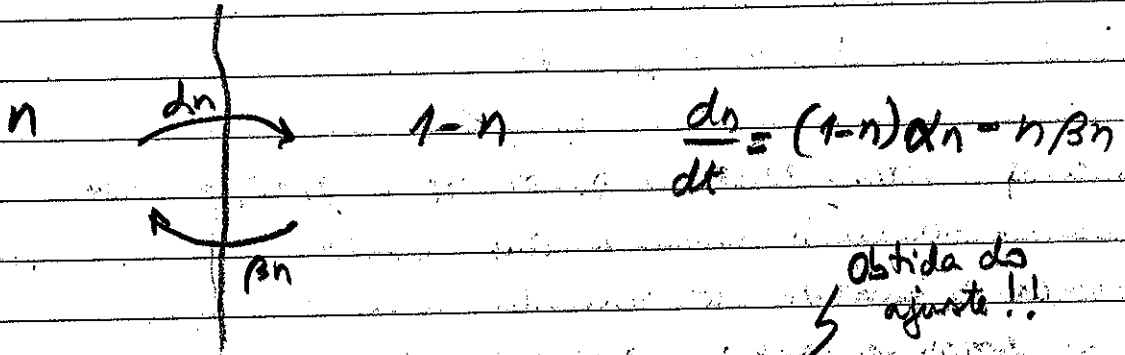 n αn 1-n dn/dt = (1-n)αn - nβn
βn
Obtida do
ajuste!!